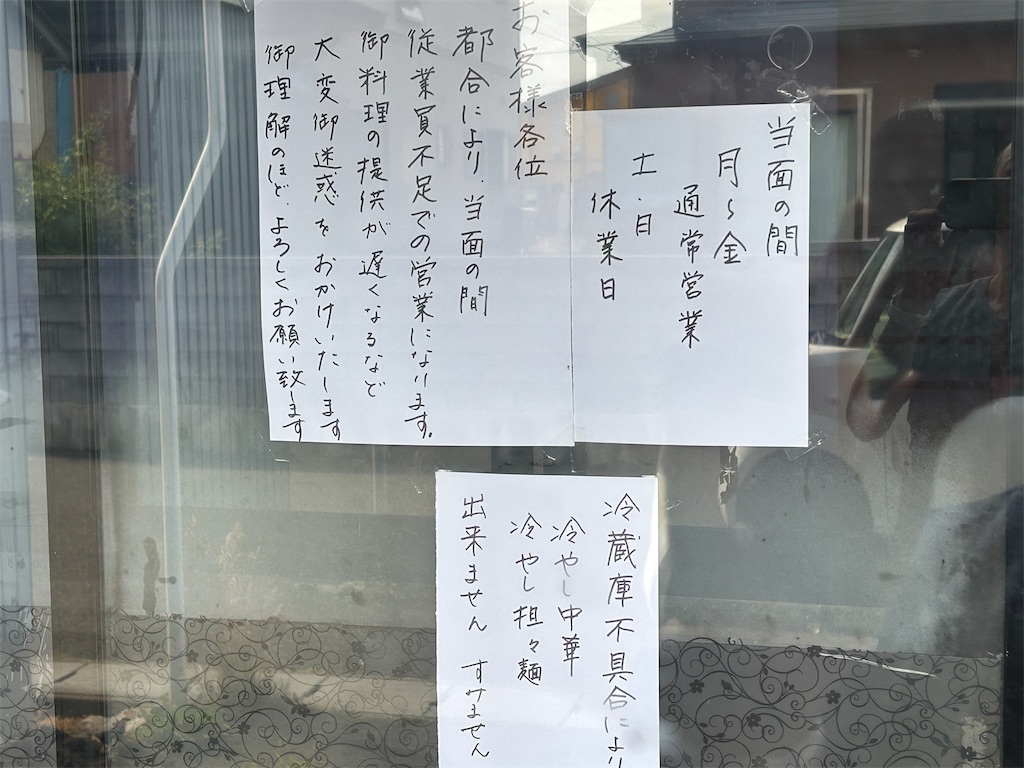 当面の間
月〜金
通常営業
土・日
休業日
お客様各位
都合により、当面の間
従業員不足での営業になります。
御料理の提供が遅くなるなど
大変御迷惑をおかけいたします
御理解のほど、よろしくお願い致します
冷蔵庫不具合により
冷やし中華
冷やし担々麺
出来ません すみません